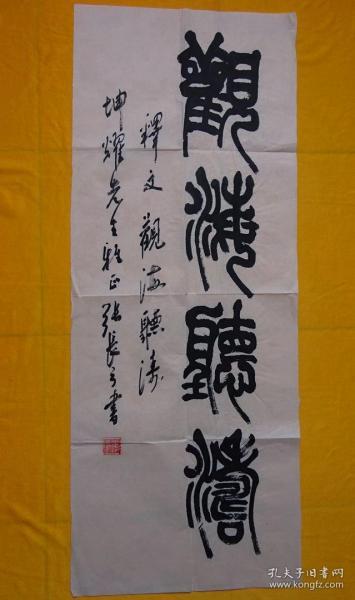 觀海聽濤
釋文觀海聽濤
坤耀先生雅正張長弓書
孔夫子旧书网